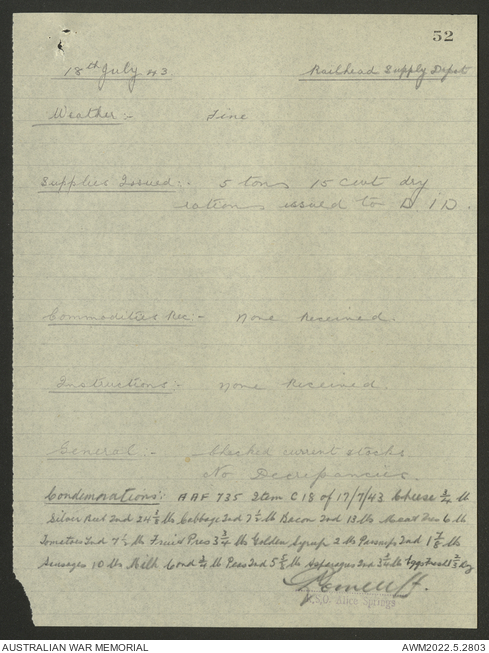 52
18th July 43 Railhead Supply Depot
Weather:- Fine
Supplies Issued:- 5 tons 15 cwt dry
rations issued to D.I.D.
Commodities Rec:- None Received.
Instructions:- None Received.
General:- Checked current stocks
No Decripancies
Condemnations:- AAF 735 Item C18 of 17/7/43 Cheese 3/4 lb
Silver Beet 2nd 24 1/2 lbs Cabbage 2nd 7 1/2 lb Bacon 2nd 13 lbs Meat 6 lb
Tomatoes 2nd 7 1/2 lb Fruit Pres 3 3/4 lb Golden Syrup 2 lbs Parsnip 2nd 1 7/8 lb
Sausages 10 lbs Milk Cond 3/4 lb Peas 2nd lb Asparagus 2nd lb Eggs
S.O. Alice Springs
AUSTRALIAN WAR MEMORIAL AWM2022.5.2803